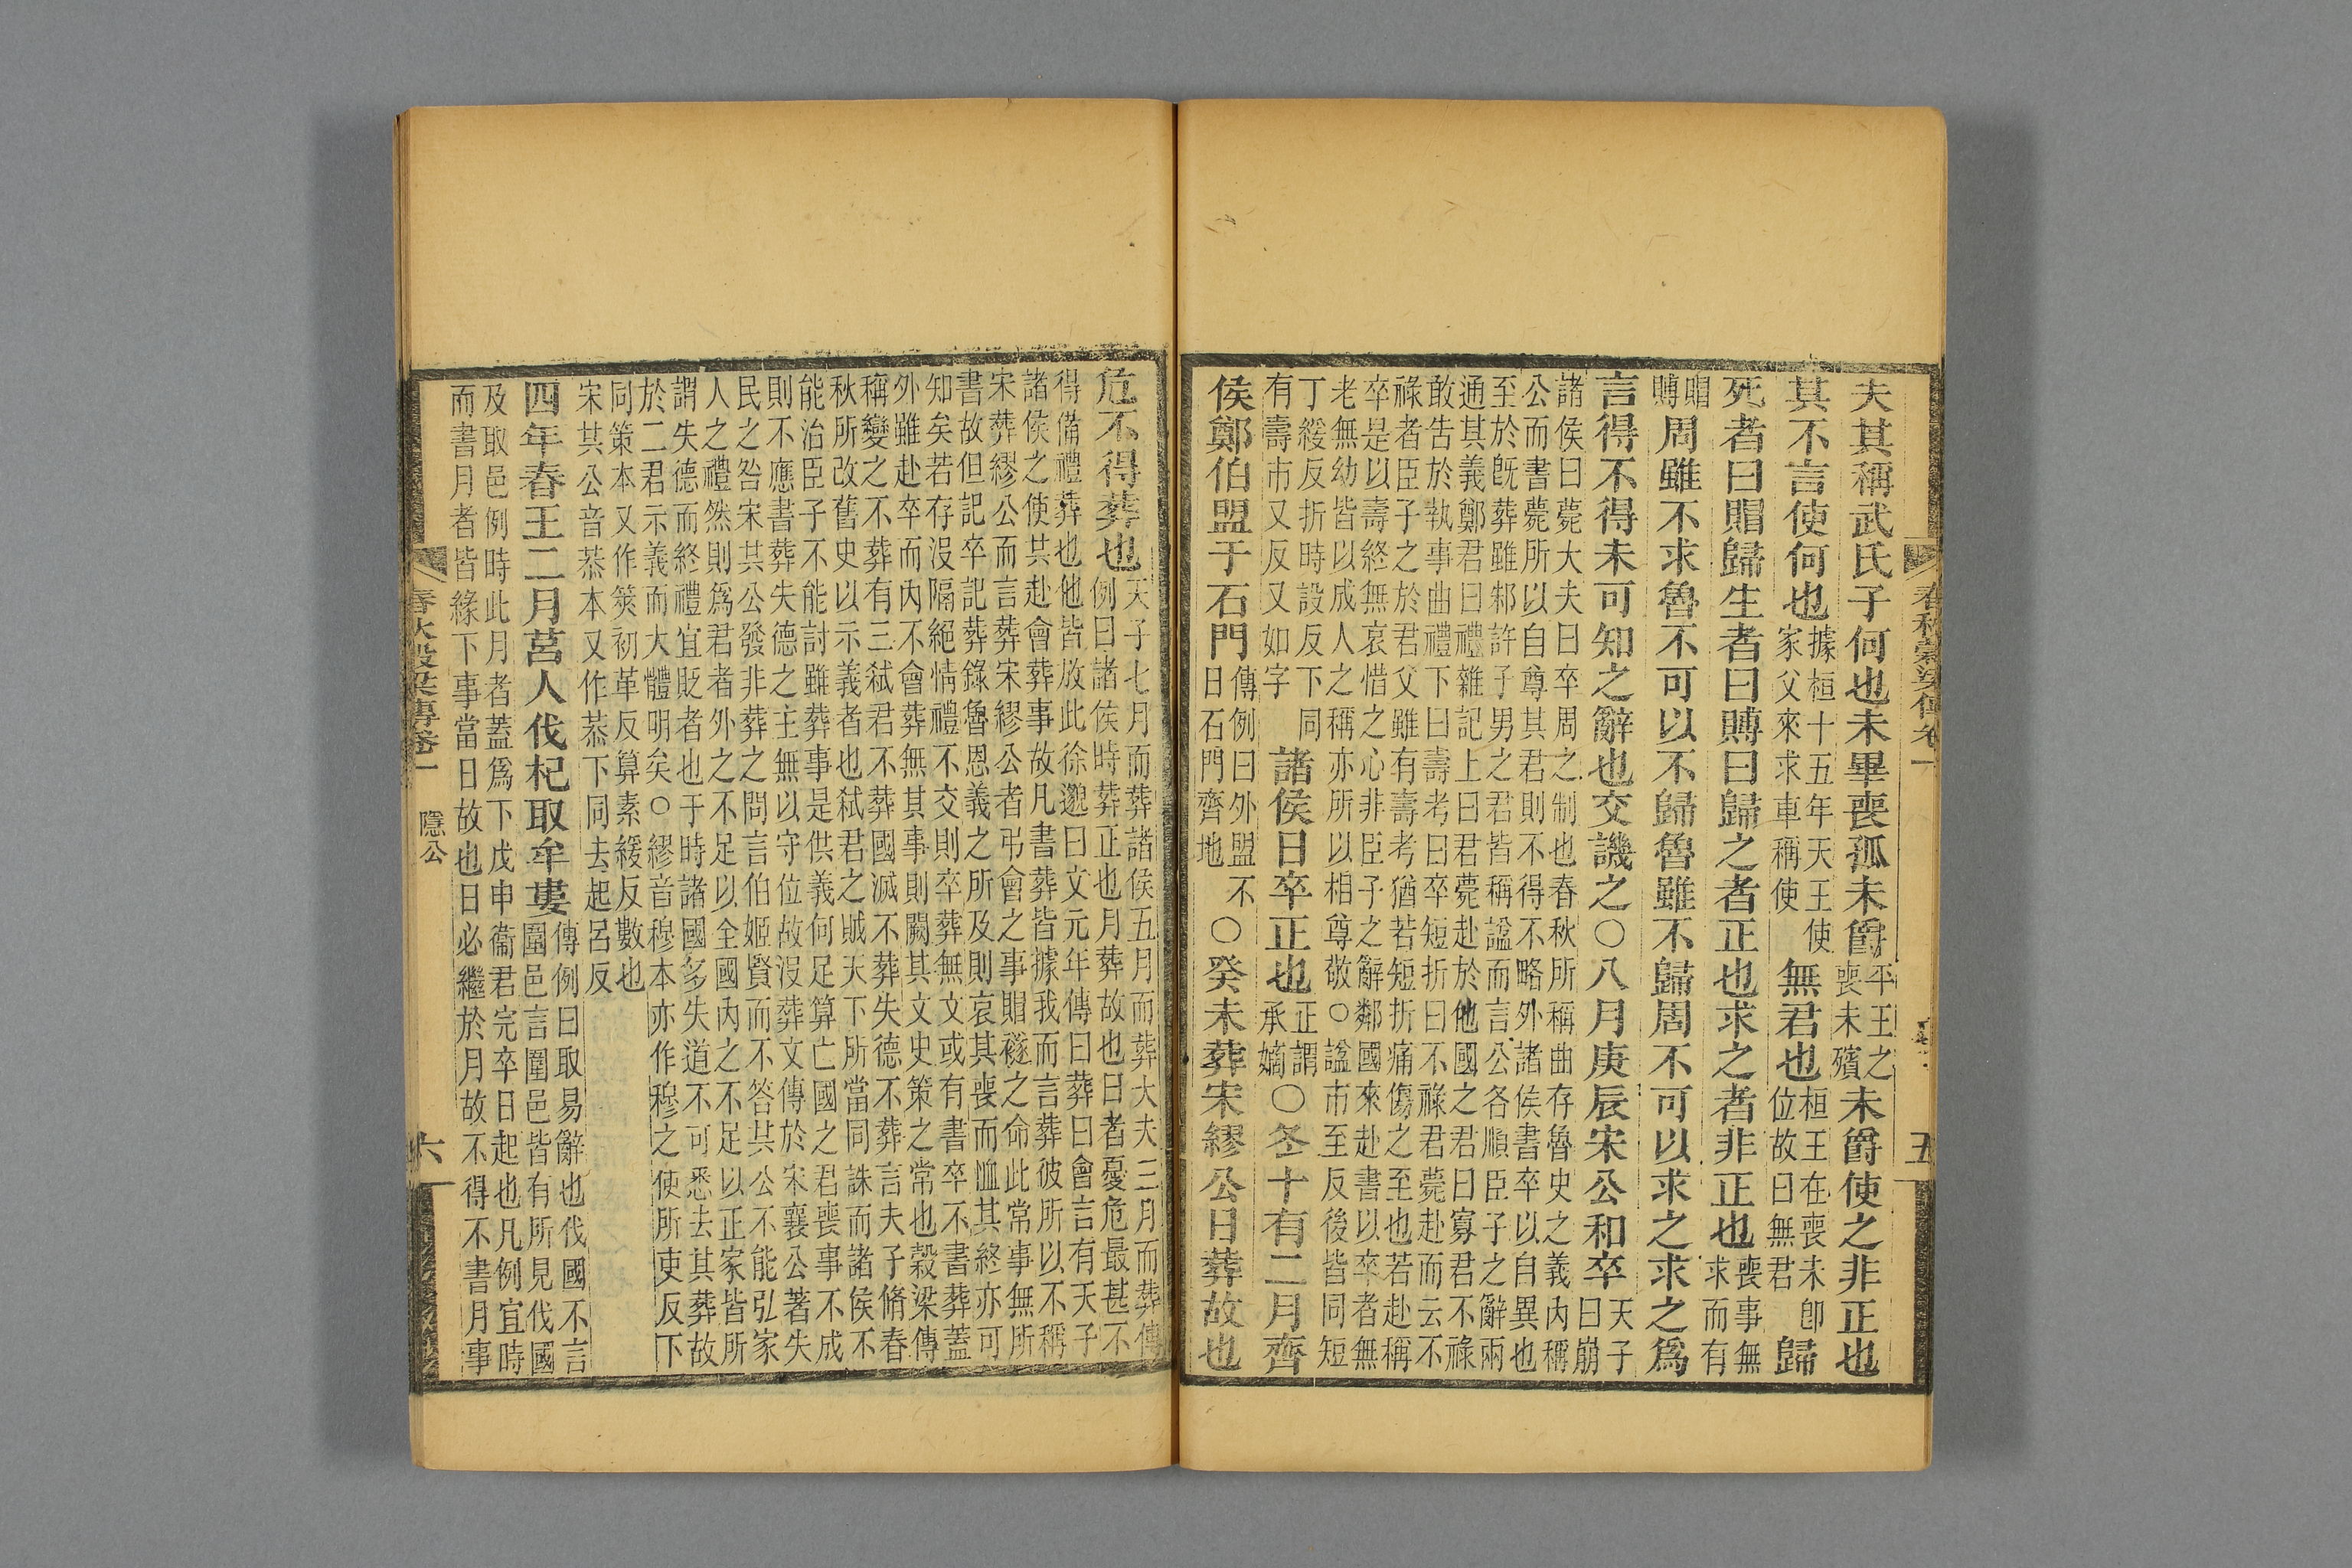 春秋穀梁傳卷一
五
夫其稱武氏子何也未畢喪孤未爵平王之喪未殯未爵使之非正也
其不言使何也據桓十五年天王使家父來求車稱使無君也桓王在喪未卽位故曰無君歸
死者曰賵歸生者曰賻曰歸之者正也求之者非正也喪事無求而有
賵賻周雖不求魯不可以不歸魯雖不歸周不可以求之求之爲
言得不得未可知之辭也交譏之〇八月庚辰宋公和卒天子曰崩
諸侯曰薨大夫曰卒周之制也春秋所稱曲存魯史之義內稱
公而書薨所以自尊其君則不得不略外諸侯書卒以自異也
至於旣葬雖邾許子男之君皆稱諡而言公各順臣子之辭兩
通其義鄭君曰禮雜記上曰君薨赴於他國之君曰寡君不祿
敢告於執事曲禮下曰壽考曰卒短折曰不祿君薨赴而云不
祿者臣子之於君父雖有壽考猶若短折痛傷之至也若赴稱
卒是以壽終無哀惜之心非臣子之辭鄰國來赴書以卒者無
老無幼皆以成人之稱亦所以相尊敬〇諡市至反後皆同短
丁緩反折時設反下同有壽市又反又如字諸侯日卒正也正謂承嫡〇冬十有二月齊
侯鄭伯盟于石門傳例曰外盟不日石門齊地〇癸未葬宋繆公日葬故也
危不得葬也天子七月而葬諸侯五月而葬大夫三月而葬傳例曰諸侯時葬正也月葬故也日者憂危最甚不
得備禮葬也他皆放此徐邈曰文元年傳曰葬曰會言有天子
諸侯之使其赴會葬事故凡書葬皆據我而言葬彼所以不稱
宋葬繆公而言葬宋繆公者弔會之事賵襚之命此常事無所
書故但記卒記葬錄魯恩義之所及則哀其喪而恤其終亦可
知矣若存沒隔絕情禮不交則卒葬無文或有書卒不書葬蓋
外雖赴卒而內不會葬無其事則闕其文史策之常也穀梁傳
稱變之不葬有三弒君不葬國滅不葬失德不葬言夫子脩春
秋所改舊史以示義者也弒君之賊天下所當同誅而諸侯不
能治臣子不能討雖葬事是供義何足算亡國之君喪事不成
則不應書葬失德之主無以守位故沒葬文傳於宋襄公著失
民之咎宋共公發非葬之問言伯姬賢而不答共公不能弘家
人之禮然則爲君者外之不足以全國內之不足以正家皆所
謂失德而終禮宜貶者也于時諸國多失道不可悉去其葬故
於二君示義而大體明矣〇繆音穆本亦作穆之使所吏反下
同策本又作筴初革反算素緩反數也
宋其公音恭本又作恭下同去起呂反
四年春王二月莒人伐杞取牟婁傳例曰取易辭也伐國不言圍邑言圍邑皆有所見伐國
及取邑例時此月者蓋爲下戊申衞君完卒日起也凡例宜時
而書月者皆緣下事當日故也日必繼於月故不得不書月事
春秋穀梁傳卷一 隱公
六